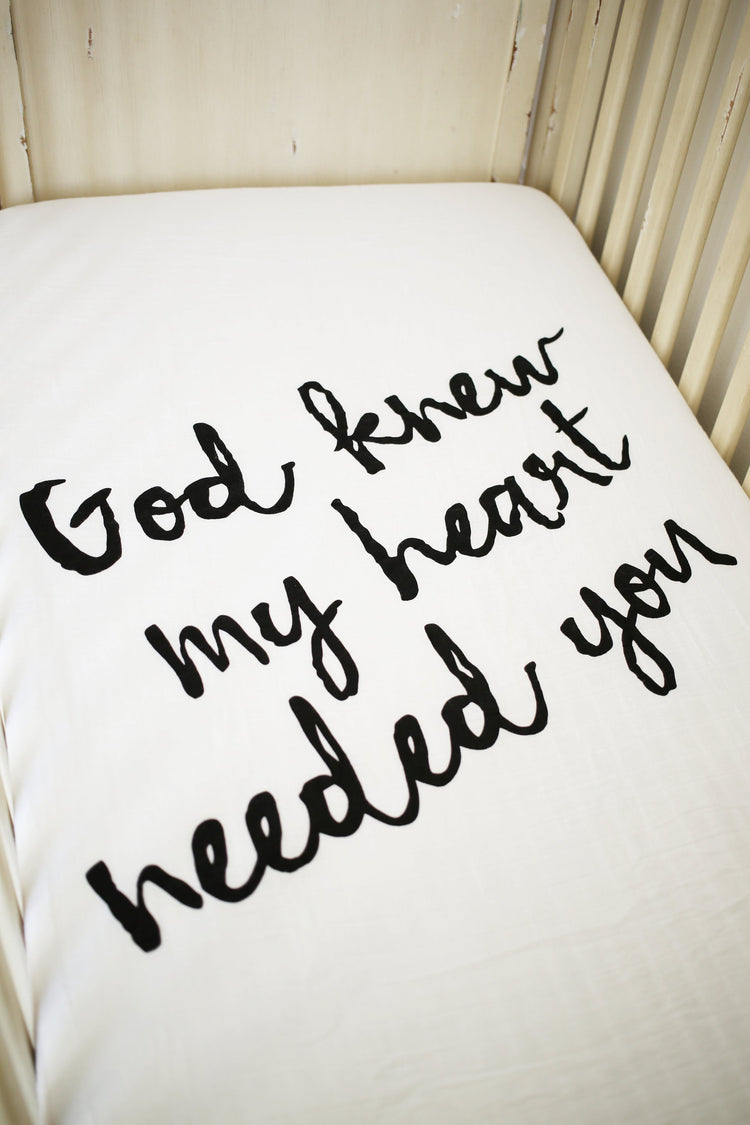 God knew
my heart
needed you